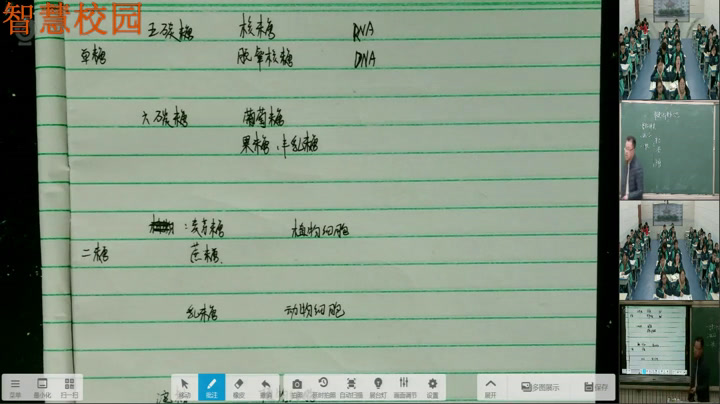 智慧校园
五碳糖 核糖 RNA
单糖 脱氧核糖 DNA
六碳糖 葡萄糖
果糖、半乳糖
:麦芽糖 植物细胞
二糖 蔗糖
乳糖 动物细胞
菜单 最小化 扫一扫 移动 批注 橡皮 撤销 拍照 延时拍摄 自动扫描 展台灯 画面调节 设置 展开 多图展示 保存